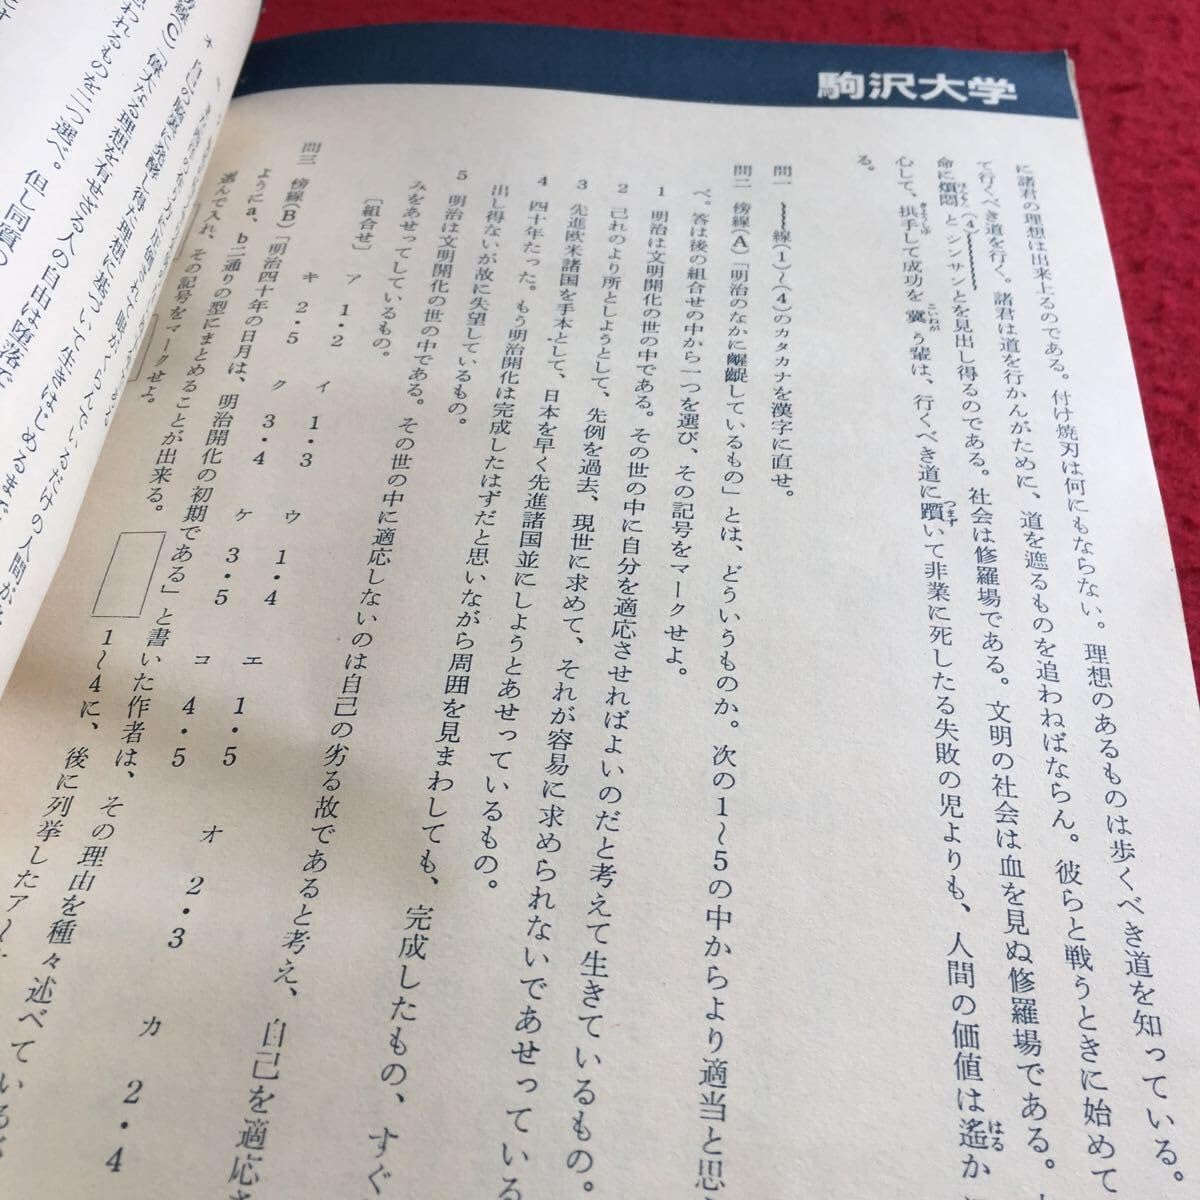 駒沢大学
に諸君の理想は出来上るのである。付け焼刃は何にもならない。理想のあるものは歩くべき道を知っている。
て行くべき道を行く。諸君は道を行かんがために、道を遮るものを追わねばならん。彼らと戦うときに始めて
命に煩悶とシンサンとを見出し得るのである。社会は修羅場である。文明の社会は血を見ぬ修羅場である。
心して、拱手して成功を冀う輩は、行くべき道に躓いて非業に死したる失敗の児よりも、人間の価値は遙か
る。
問一 線(1)～(4)のカタカナを漢字に直せ。
問二 傍線(A)「明治のなかに齷齪しているもの」とは、どういうものか。次の1～5の中からより適当と思
べ。答は後の組合せの中から一つを選び、その記号をマークせよ。
1 明治は文明開化の世の中である。その世の中に自分を適応させればよいのだと考えて生きているもの。
2 己れのより所としようとして、先例を過去、現世に求めて、それが容易に求められないであせっている
3 先進欧米諸国を手本として、日本を早く先進諸国並にしようとあせっているもの。
4 四十年たった。もう明治開化は完成したはずだと思いながら周囲を見まわしても、完成したもの、すぐ
出し得ないが故に失望しているもの。
5 明治は文明開化の世の中である。その世の中に適応しないのは自己の劣る故であると考え、自己を適応
みをあせってしているもの。
〔組合せ〕
ア 1・2 イ 1・3 ウ 1・4 エ 1・5 オ 2・3 カ 2・4
キ 2・5 ク 3・4 ケ 3・5 コ 4・5
問三 傍線(B)「明治四十年の日月は、明治開化の初期である」と書いた作者は、その理由を種々述べている
ようにa、b二通りの型にまとめることが出来る。 1～4に、後に列挙したア～
選んで入れ、その記号をマークせよ。
傍線(C)「偉大なる理想を有せざる人の自由は堕落で
われるものを二つ選べ。但し同質の
オ 自己の脳裏に発酵し得た理想に基づいて生きはじめるまで